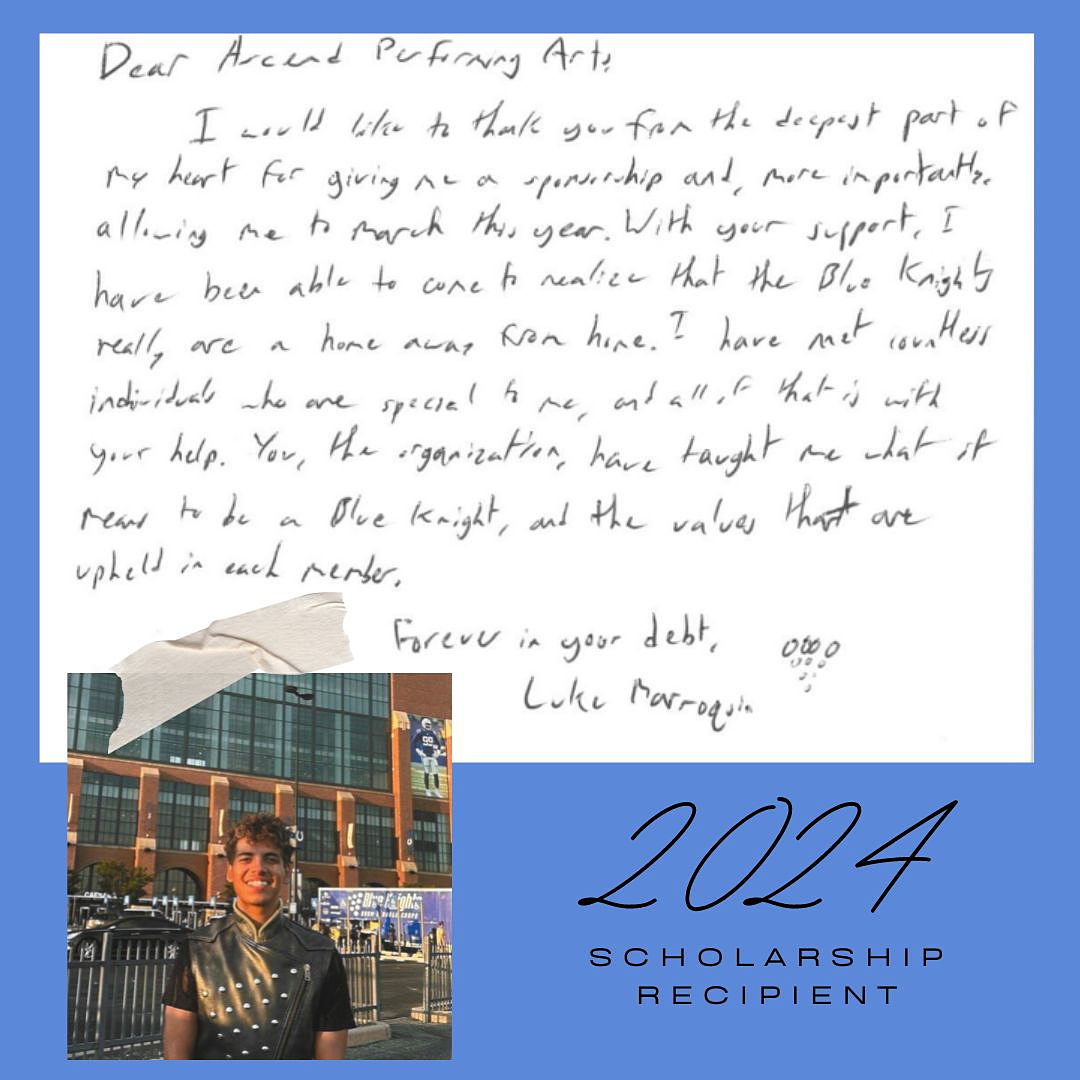 Dear Ascend Performing Arts,
I would like to thank you from the deepest part of
my heart for giving me a sponsorship and, more importantly,
allowing me to march this year. With your support, I
have been able to come to realize that the Blue Knights
really are a home away from home. I have met countless
individuals who are special to me, and all of that is with
your help. You, the organization, have taught me what it
means to be a Blue Knight, and the values that are
upheld in each member.
Forever in your debt,
Luke Marroquin
Blue Knights
DRUM & BUGLE CORPS
2024
SCHOLARSHIP
RECIPIENT